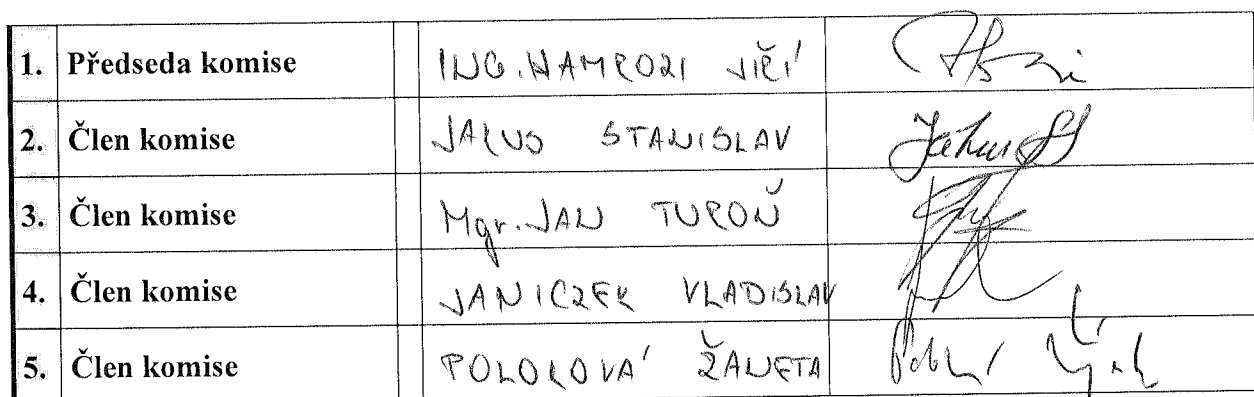 1. Předseda komise ING. HAMROZI JIŘÍ
2. Člen komise STANISLAV
3. Člen komise Mgr. JAN TUROŇ
4. Člen komise JANICZEK VLADISLAV
5. Člen komise ŽANETA